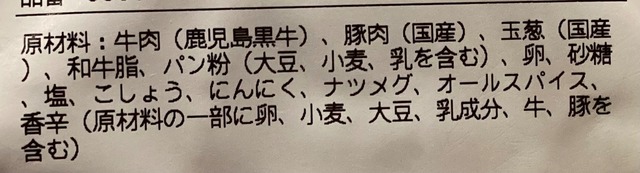 原材料：牛肉（鹿児島黒牛）、豚肉（国産）、玉葱（国産
）、和牛脂、パン粉（大豆、小麦、乳を含む）、卵、砂糖
、塩、こしょう、にんにく、ナツメグ、オールスパイス、
香辛（原材料の一部に卵、小麦、大豆、乳成分、牛、豚を
含む）